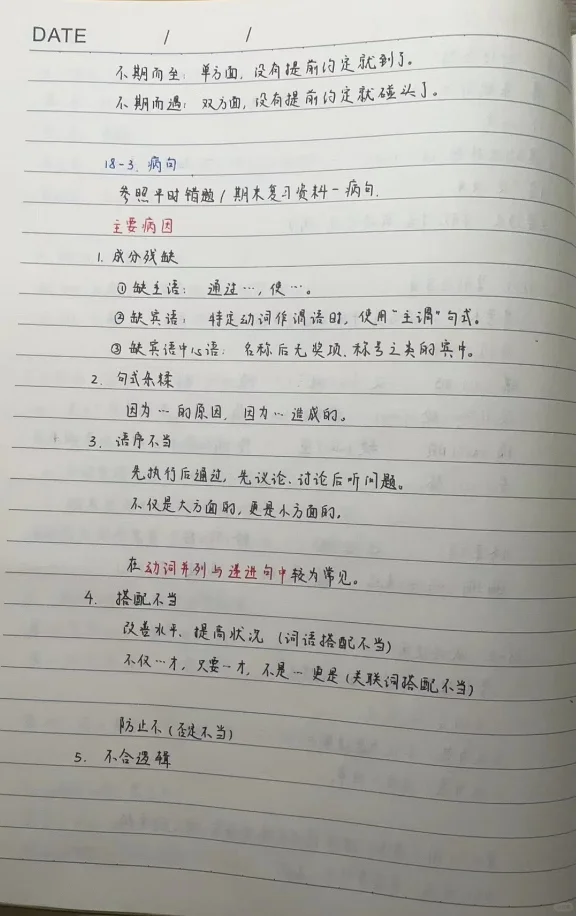 DATE / /
不期而至：单方面，没有提前约定就到了。
不期而遇：双方面，没有提前约定就碰头了。
18-3. 病句
参照平时错题/期末复习资料-病句.
主要病因
1. 成分残缺
①缺主语： 通过…，使…。
②缺宾语： 特定动词作谓语时，使用“主谓”句式。
③缺宾语中心语：名称后无奖项、称号之类的宾中。
2. 句式杂糅
因为…的原因，因为…造成的。
3. 语序不当
先执行后通过，先议论、讨论后听问题。
不仅是大方面的，更是小方面的。
在动词并列与递进句中较为常见。
4. 搭配不当
改善水平、提高状况（词语搭配不当）
不仅…才，只要…才，不是…更是（关联词搭配不当）
防止不（否定不当）
5. 不合逻辑